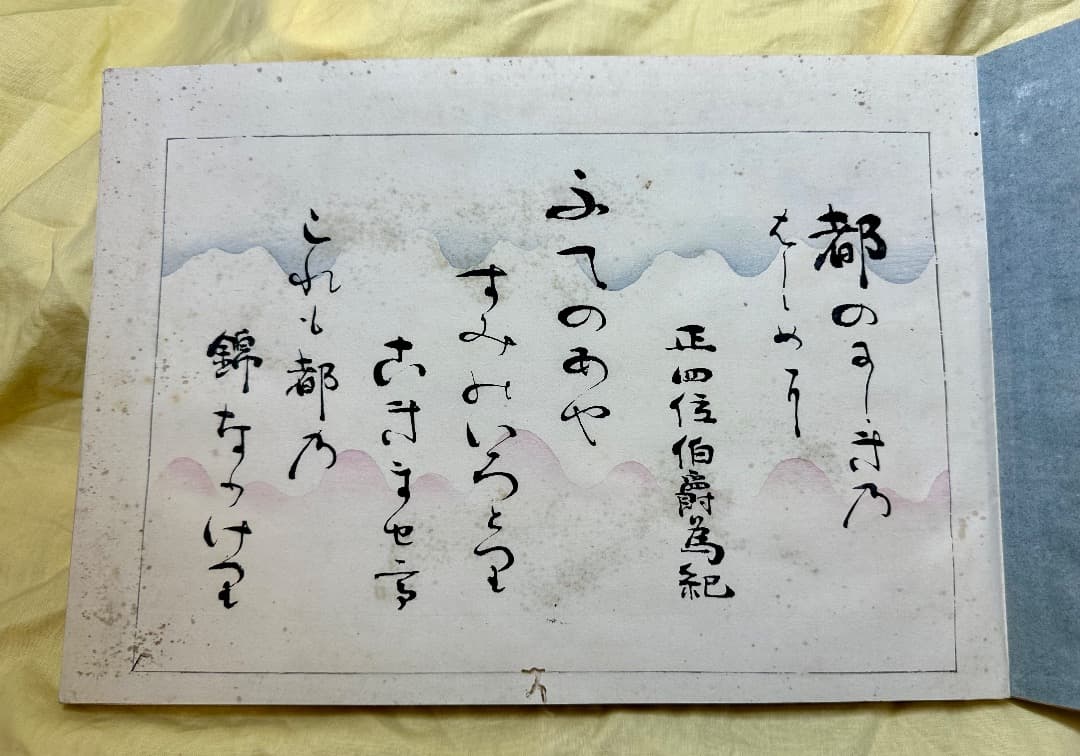 都のにしき乃
はしめに
正四位伯爵為紀
ふてのあや
すみのいろとり
こきませて
これも都乃
錦なりけり